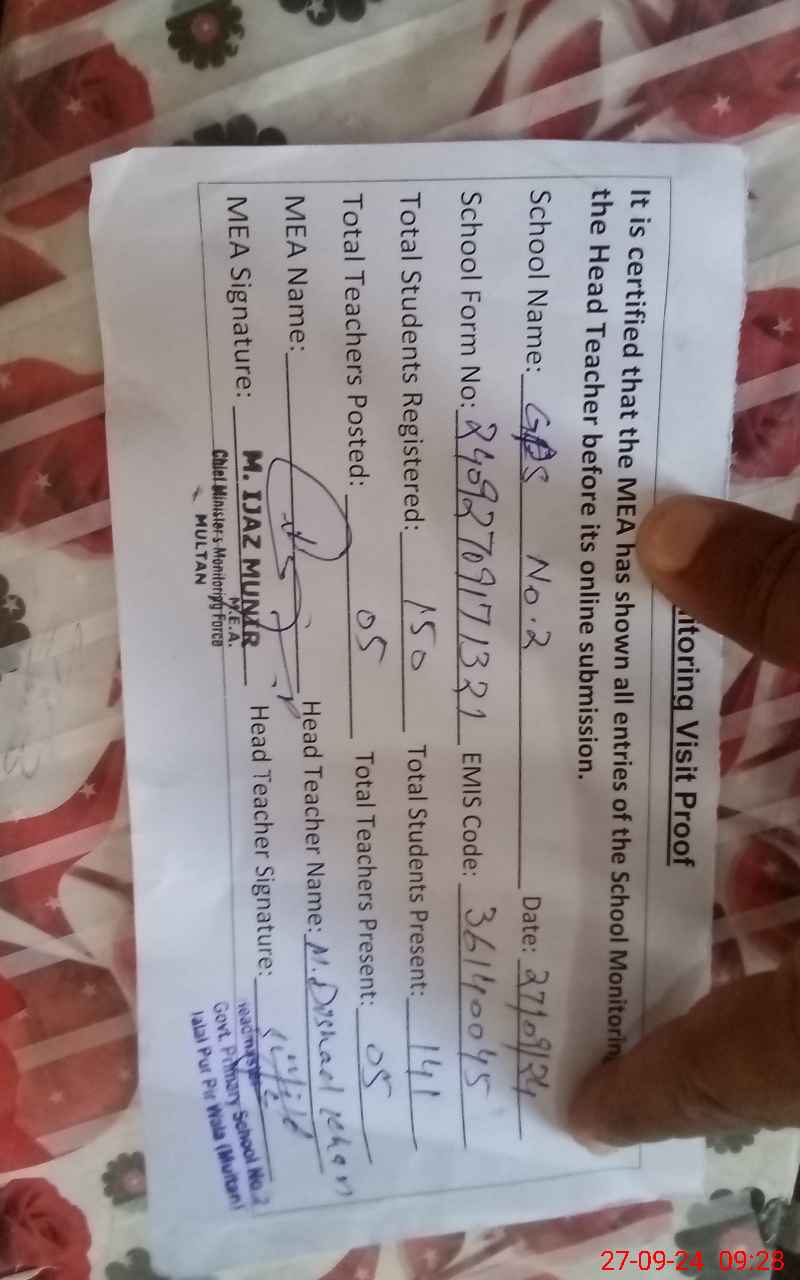 itoring Visit Proof
It is certified that the MEA has shown all entries of the School Monitoring
the Head Teacher before its online submission.
School Name: GPS No.2 Date: 27/09/24
School Form No: 24092709171321 EMIS Code: 36140045
Total Students Registered: 150 Total Students Present: 141
Total Teachers Posted: 05 Total Teachers Present: 05
MEA Name: Head Teacher Name: M. Dishad khan
MEA Signature: Head Teacher Signature:
M. IJAZ MUNIR
M.E.A.
Chief Minister's Monitoring Force
MULTAN
Headmaster
Govt. Primary School No.2
Jalal Pur Pir Wala (Multan)
27-09-24 09:28